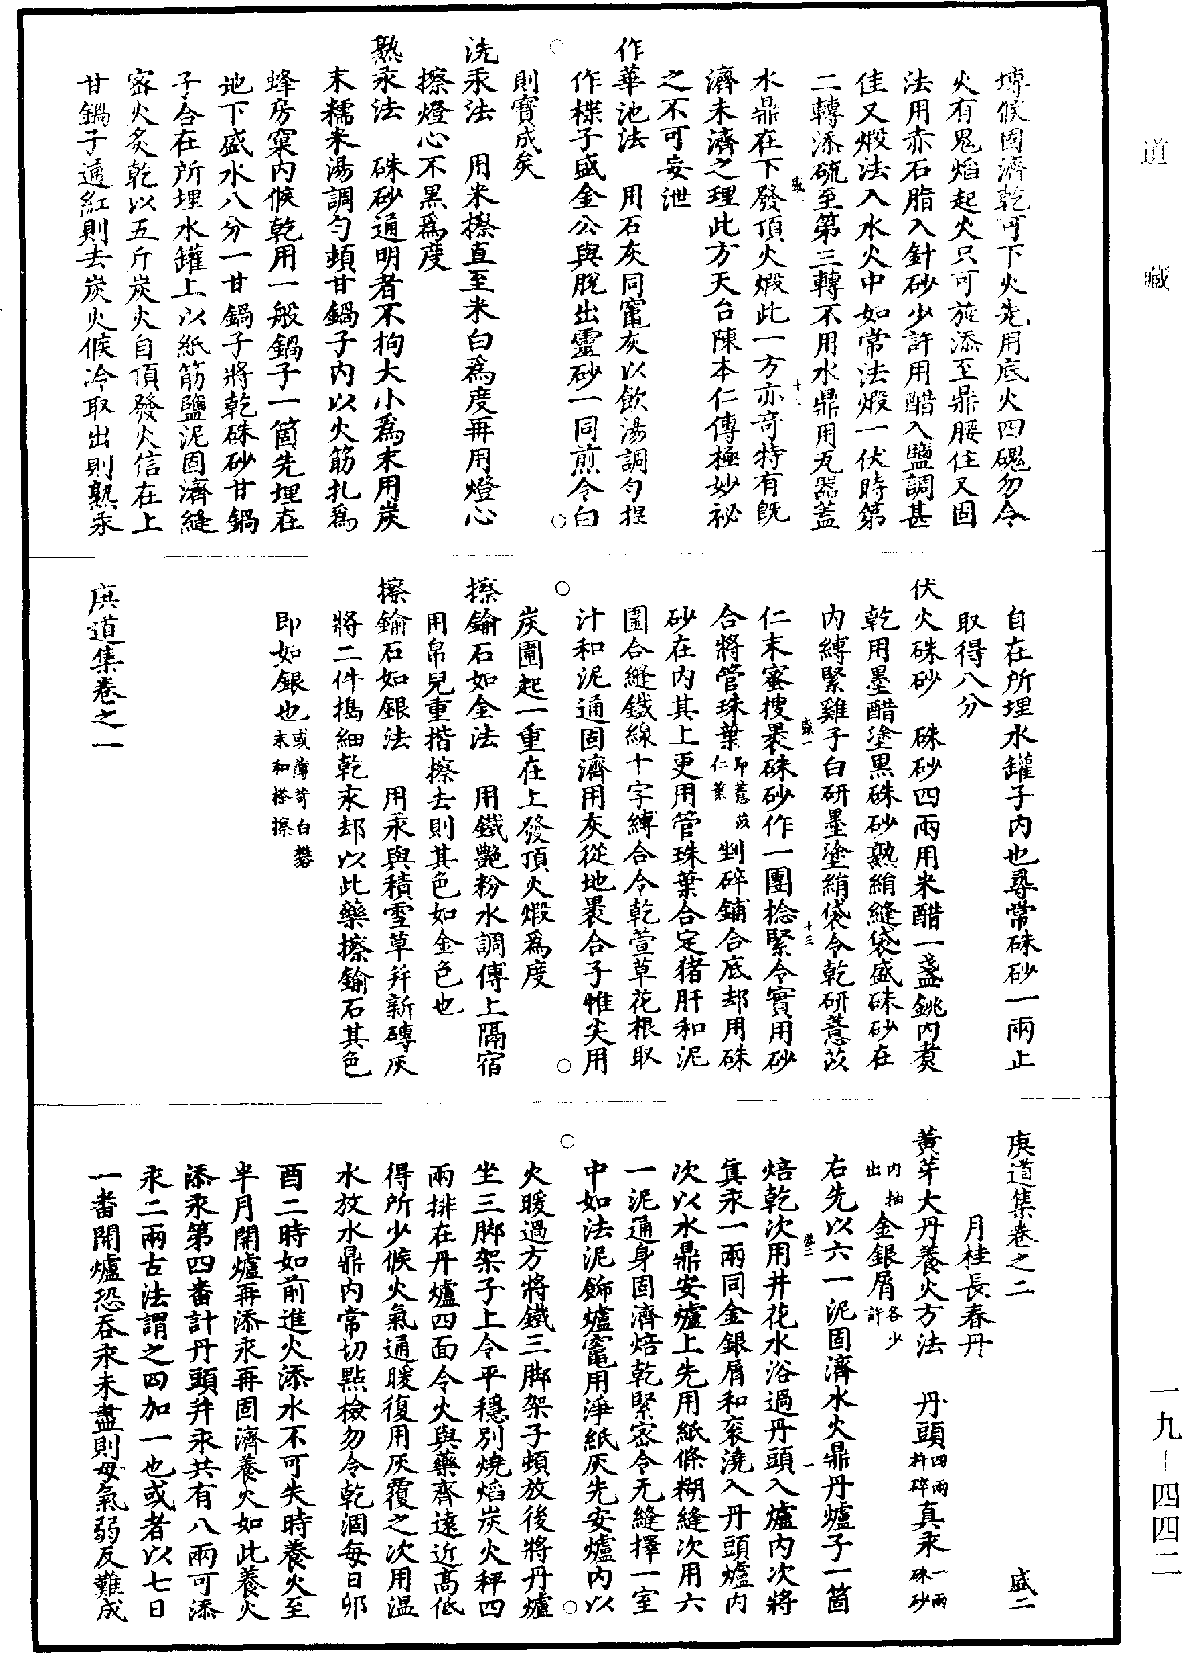 道藏
塼候固濟乾可下火先用底火四塊勿令
火有鬼焰起火只可旋添至鼎腰住又固
法用赤石脂入針砂少許用醋入鹽調甚
佳又煅法入水火中如常法煅一伏時第
二轉添硫至第三轉不用水鼎用瓦器蓋
水鼎在下發頂火煅此一方亦奇特有既
濟未濟之理此方天台陳本仁傳極妙祕
之不可妄泄
作華池法　用石灰同竈灰以飲湯調勺捏
作楪子盛金公與脫出靈砂一同煎令白
則寶成矣
洗汞法　用米擦直至米白爲度再用燈心
擦燈心不黑爲度
熟汞法　硃砂通明者不拘大小爲末用炭
末糯米湯調勺頓甘鍋子內以火筯扎爲
蜂房窠內候乾用一般鍋子一箇先埋在
地下盛水八分一甘鍋子將乾硃砂甘鍋
子合在所埋水罐上以紙筋鹽泥固濟縫
密火炙乾以五斤炭火自頂發火信在上
甘鍋子通紅則去炭火候冷取出則熟汞
自在所埋水罐子內也尋常硃砂一兩止
取得八分
伏火硃砂　硃砂四兩用米醋一盞銚內煑
乾用墨醋塗黒硃砂熟絹縫袋盛硃砂在
內縛緊雞子白研墨塗絹袋令乾研薏苡
仁末蜜搜褁硃砂作一團捻緊令實用砂
合將管珠葉即薏苡仁葉剉碎鋪合底却用硃
砂在內其上更用管珠葉合定猪肝和泥
圍合縫鐵線十字縛合令乾萱草花根取
汁和泥通固濟用灰從地褁合子惟尖用
炭圍起一重在上發頂火煅爲度
擦鍮石如金法　用鐵艷粉水調傅上隔宿
用帛兒重揩擦去則其色如金色也
擦鍮石如銀法　用汞與積雪草幷新磚灰
將二件搗細乾汞却以此藥擦鍮石其色
即如銀也或薄荷白礬末和搽擦
庚道集卷之一
庚道集卷之二　盛二
月桂長春丹
黃芽大丹養火方法　丹頭四兩杵碎真汞一兩硃砂
內抽出金銀屑各少許
右先以六一泥固濟水火鼎丹爐子一箇
焙乾次用井花水浴過丹頭入爐內次將
真汞一兩同金銀屑和衮澆入丹頭爐內
次以水鼎安爐上先用紙條糊縫次用六
一泥通身固濟焙乾緊密令无縫擇一室
中如法泥飾爐竈用淨紙灰先安爐內以
火暖過方將鐵三脚架子頓放後將丹爐
坐三脚架子上令平穩別燒焰炭火秤四
兩排在丹爐四面令火與藥齊遠近高低
得所少候火氣通暖復用灰覆之次用温
水放水鼎內常切點檢勿令乾涸每日卯
酉二時如前進火添水不可失時養火至
半月開爐再添汞再固濟養火如此養火
添汞第四畨計丹頭幷汞共有八兩可添
汞二兩古法謂之四加一也或者以七日
一畨開爐恐吞汞未盡則母氣弱反難成
一九—四四二